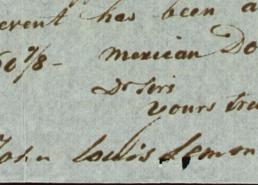 erent has been a
60 7/8 - Mexican Do
Dr Sirs
yours tru
John Louis Lemon